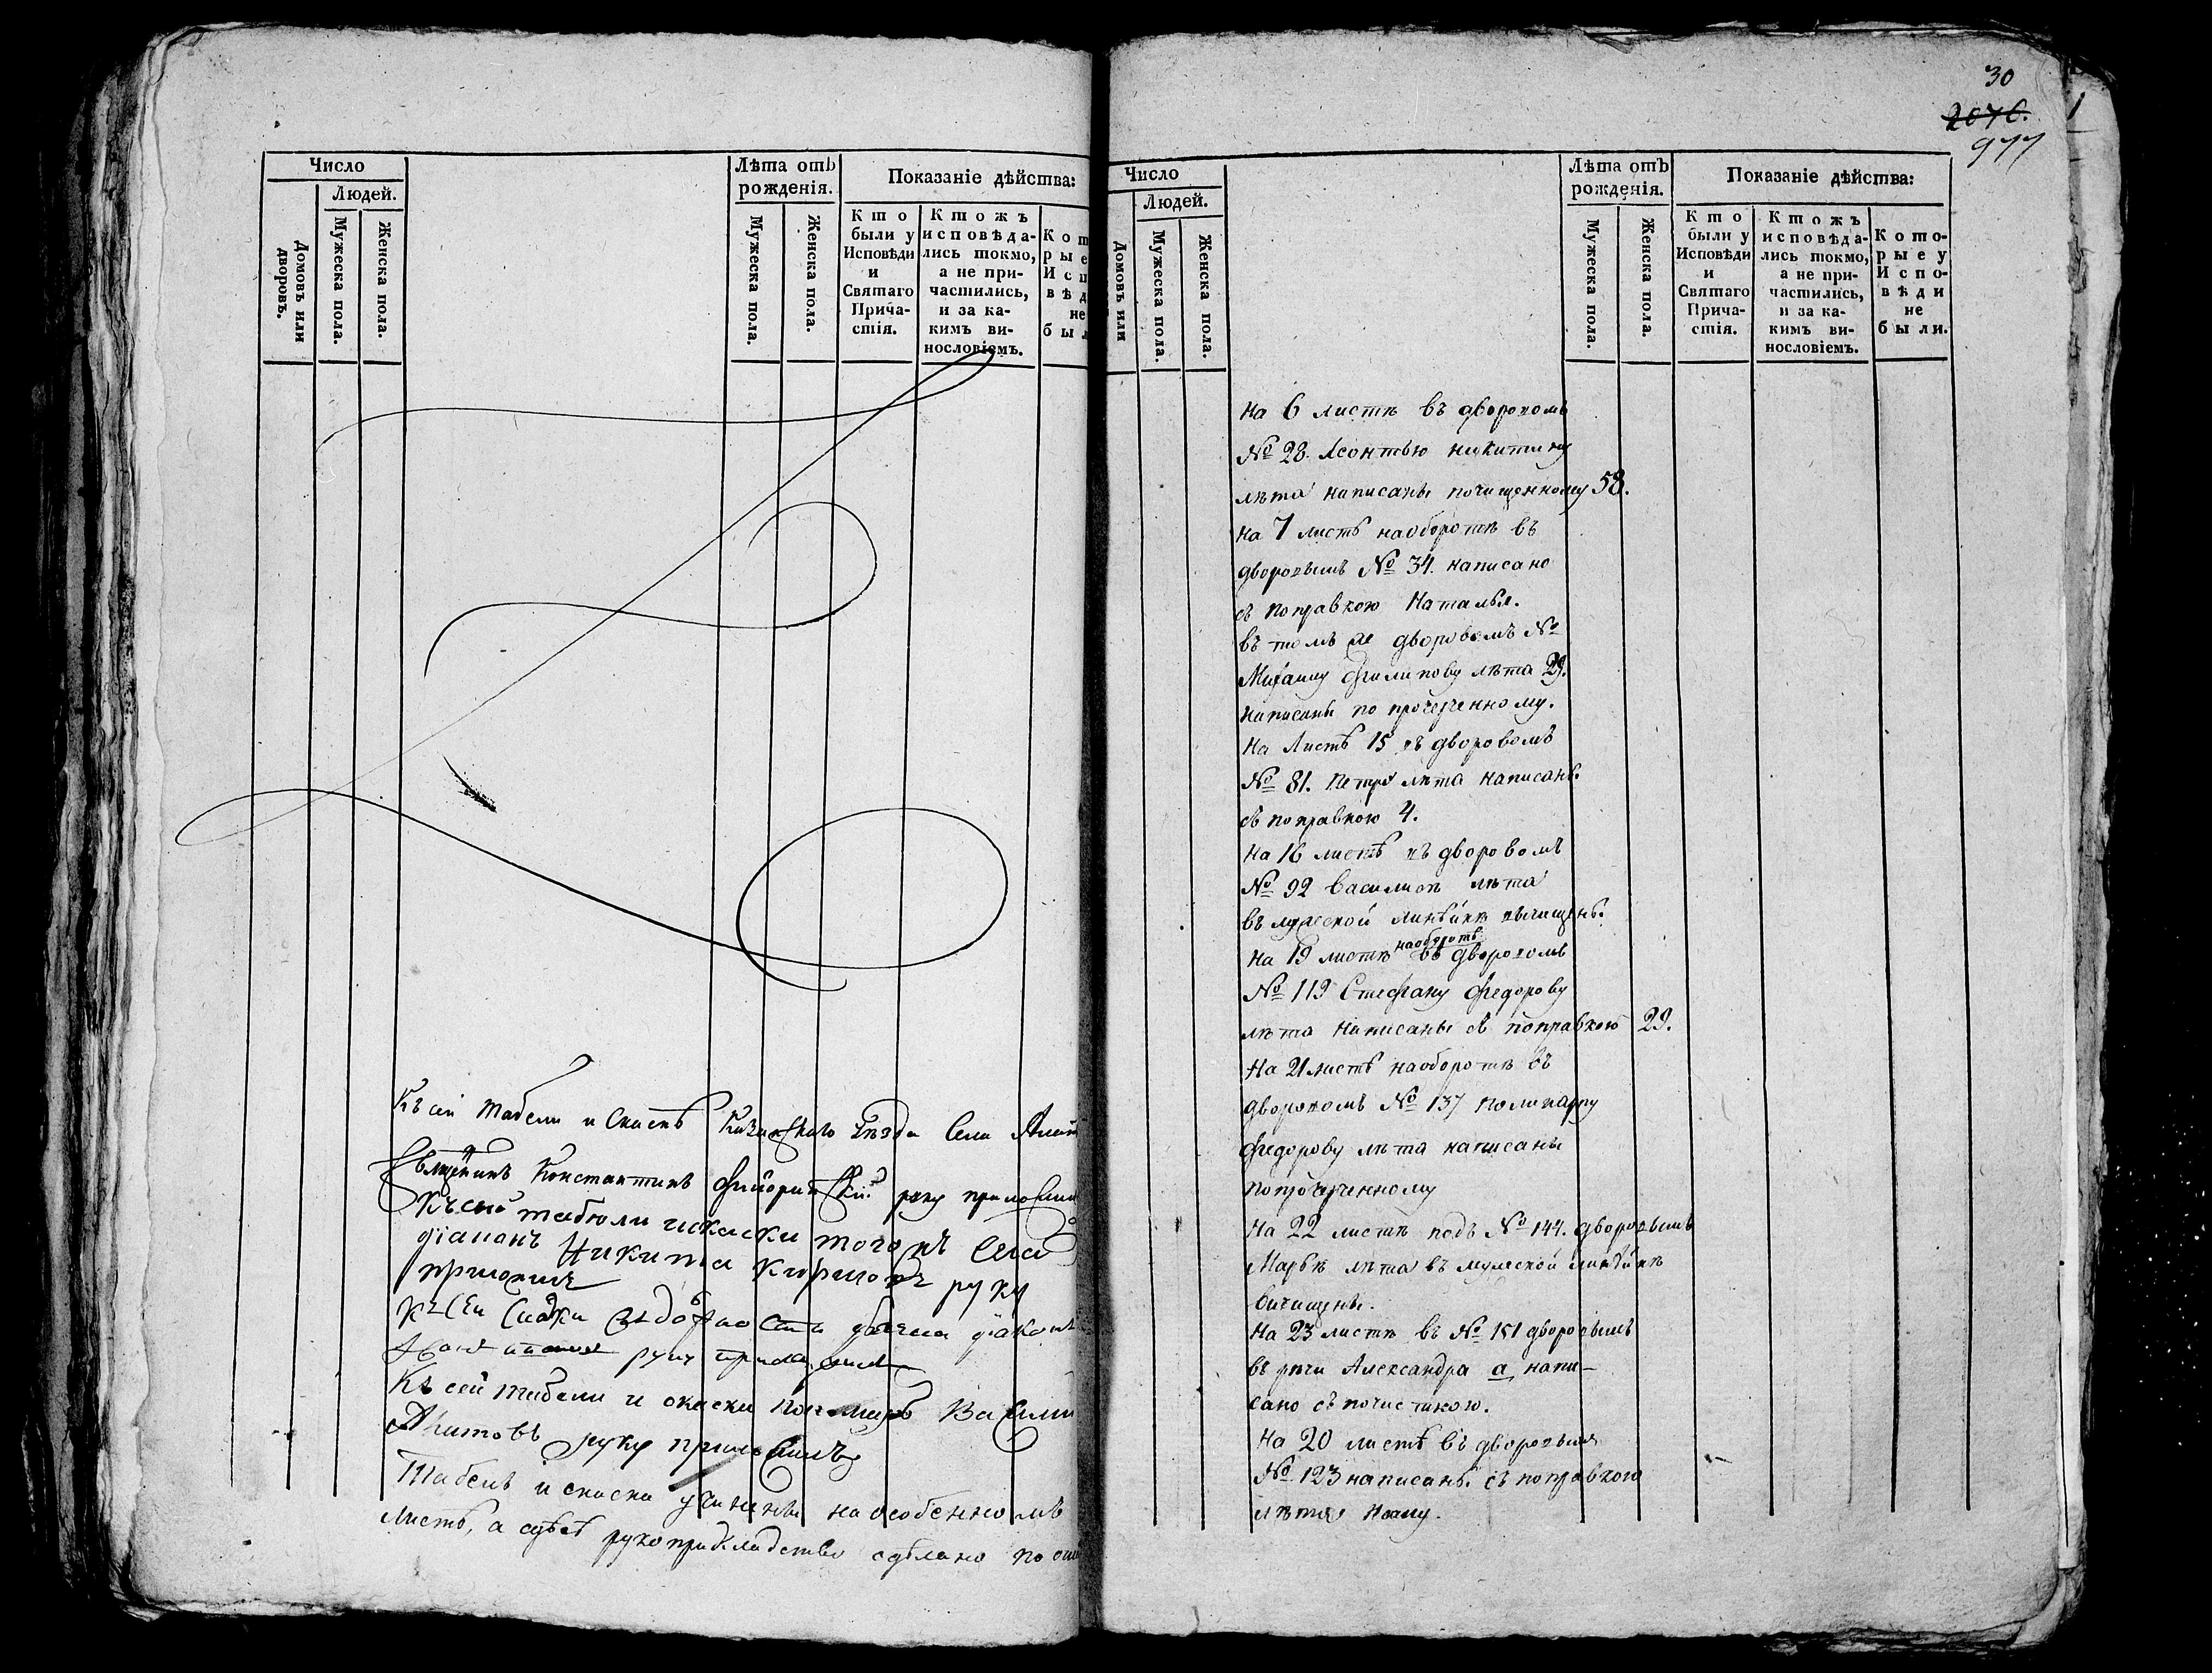 Число
Людей.
Домовъ или дворовъ.
Мужеска пола.
Женска пола.
Лѣта отъ
рожденія.
Мужеска пола.
Женска пола.
Показаніе дѣйства:
Кто
были у
Исповѣди
и
Святаго
Прича-
стія.
Ктожъ
исповѣда-
лись токмо,
а не при-
частились,
и за ка-
кимъ ви-
нословіемъ.
Кот
рые
Исп
вѣд
не
был
Къ сей табели и
Казанскаго Уѣзда Села
Священникъ Константинъ руку
Къ сей табели искаски того жъ Села
діаконъ Никита Кириловъ руку
приложилъ
Къ сей
руку
Къ сей табели и скаски Василий
руку приложилъ
Табель и скаска учинены на особенномъ
листѣ, а сдѣсь рукоприкладство сдѣлано по
30
2076.
977
Число
Людей.
Домовъ или
Мужеска пола.
Женска пола.
Лѣта отъ
рожденія.
Мужеска пола.
Женска пола.
Показаніе дѣйства:
Кто
были у
Исповѣди
и
Святаго
Прича-
стія.
Ктожъ
исповѣда-
лись токмо,
а не при-
частились,
и за ка-
кимъ ви-
нословіемъ.
Кото-
рые у
Испо-
вѣди
не
были.
На 6 листѣ въ дворовомъ
№ 28. Леонтью никитину
лѣта написаны почищенному 58.
На 7 листѣ наоборотѣ въ
дворовымъ № 34. написано
съ поправкою Наталья.
въ томъ же дворовомъ №
Михаилу Филипову лѣта 29.
написаны по прочерченному.
На Листѣ 15 въ дворовомъ
№ 81. Петру лѣта написаны
съ поправкою 4.
На 16 листѣ въ дворовомъ
№ 92 Василисѣ лѣта
въ мужеской линѣйкѣ вычищены.
наоборотѣ
На 19 листѣ въ дворовомъ
№ 119 Стефану Федорову
лѣта написаны съ поправкою 29.
На 21 листѣ наоборотѣ въ
дворовомъ № 137 Поликарпу
Федорову лѣта написаны
по прочерченному
На 22 листѣ подъ № 144. дворовымъ
Марьѣ лѣта въ мужеской линѣйкѣ
вычищены.
На 23 листѣ въ № 151 дворовымъ
въ рѣчи Александра а напи-
сано съ почисткою.
На 20 листѣ въ дворовымъ
№ 123 написаны съ поправкою
лѣта